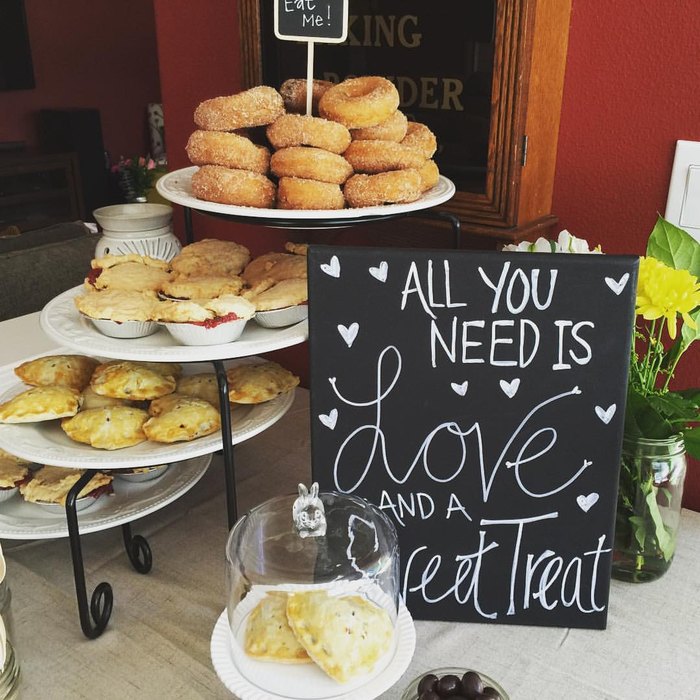 Eat
Me!
KING
ALL YOU
NEED IS
Love
AND A
Sweet Treat